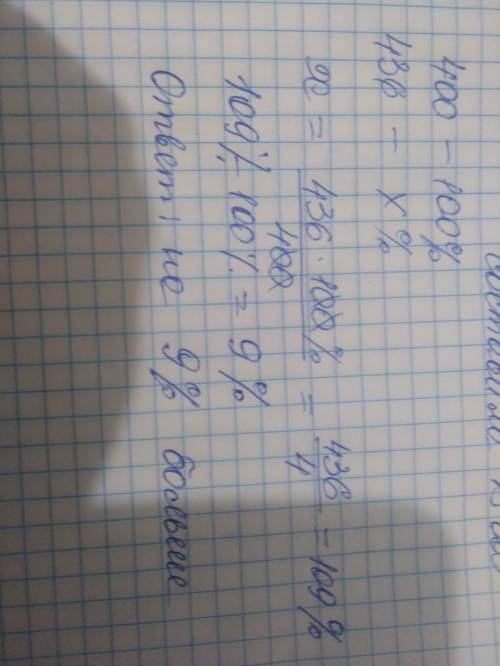 400 – 100%
436 – x%
x = 436 · 100% / 400 = 436 / 4 = 109%
109% – 100% = 9%
Ответ: на 9% больше